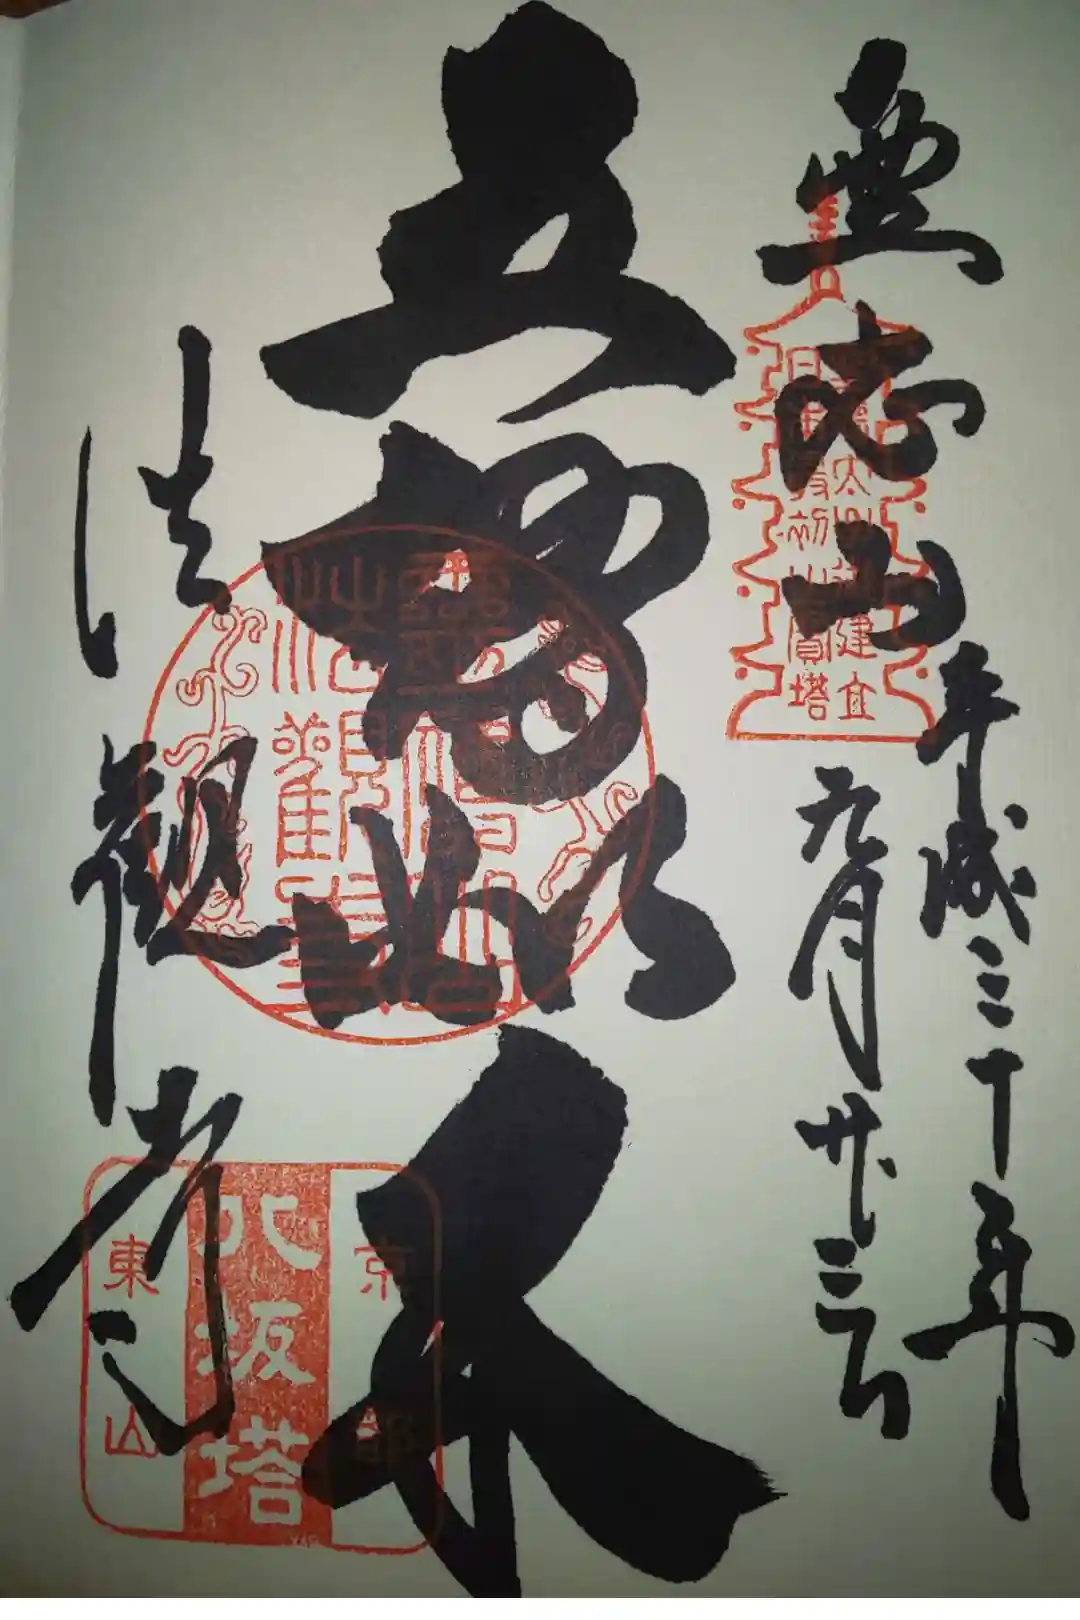 霊応山
平成三十年
九月廿三日
五智如来
法観寺
聖徳太子御建立
日本最初之寶塔
京都
八坂塔
東山